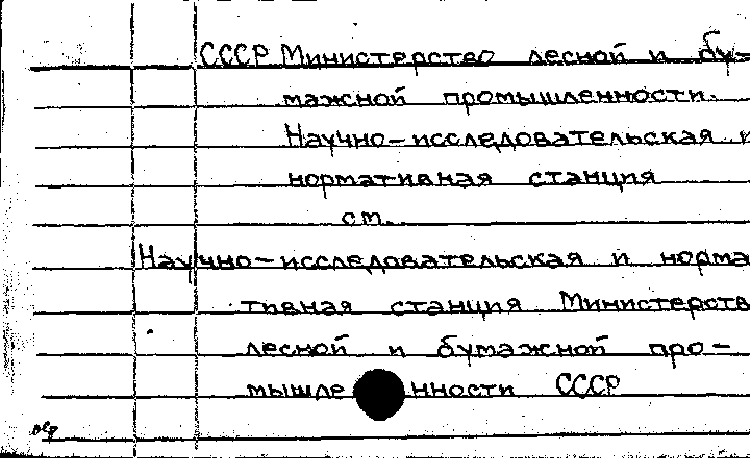 СССР Министерство лесной и бу-
мажной промышленности.
Научно-исследовательская и
нормативная станция
см.
Научно-исследовательская и норма
тивная станция Министерств
лесной и бумажной про-
мышленности СССР